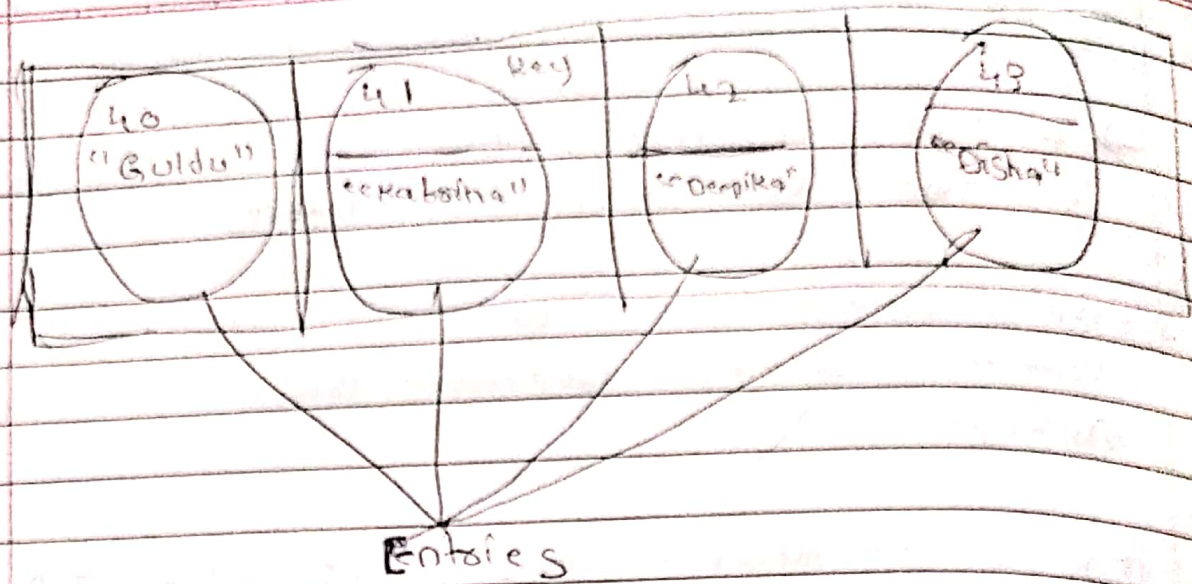 40
"Guldu"
41
key
"Katrina"
42
"Deepika"
43
"Disha"
Entries